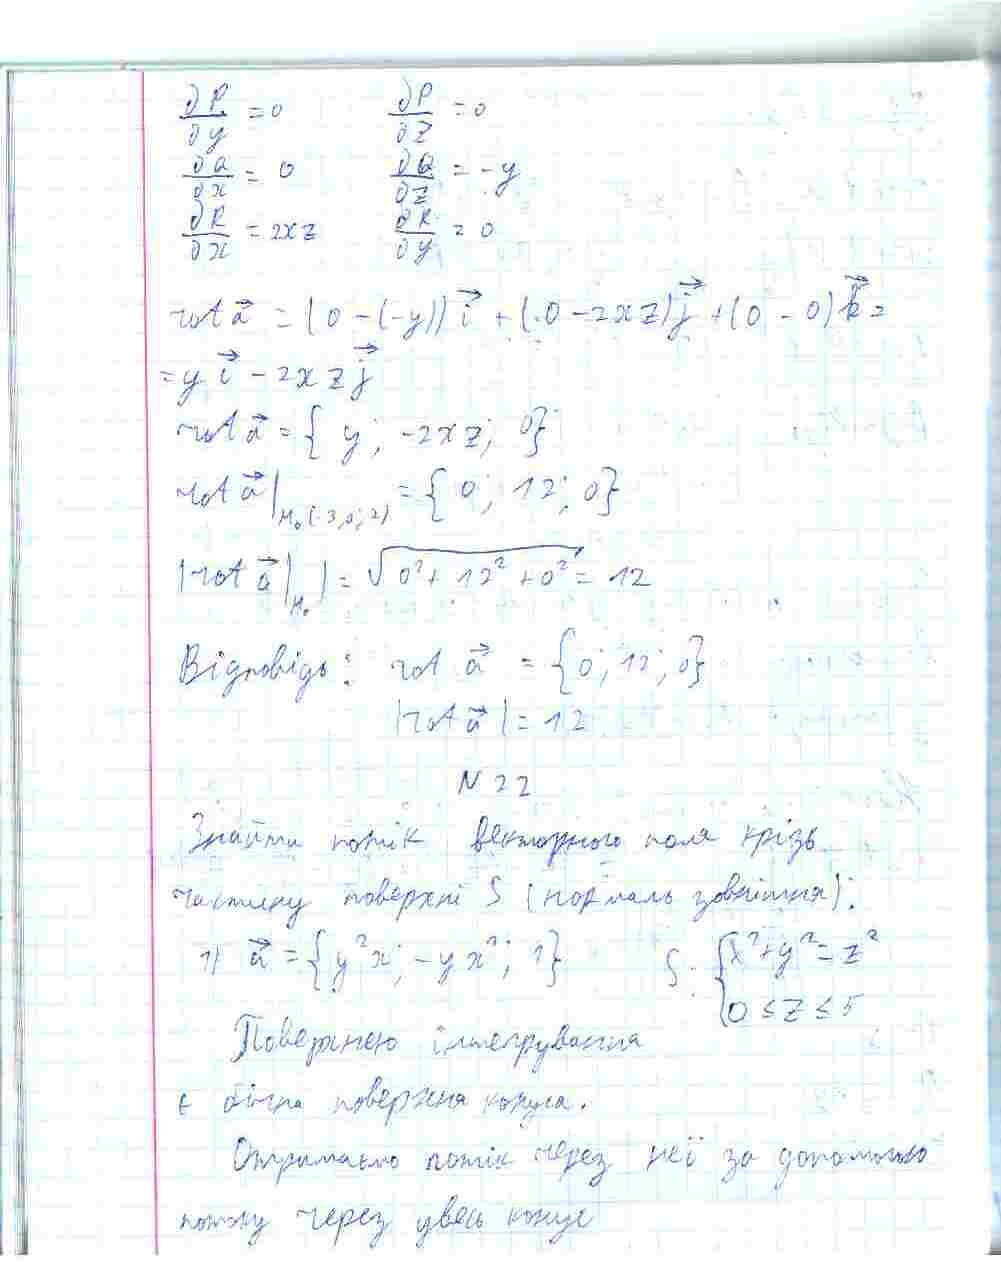 ∂P/∂y = 0 ∂P/∂z = 0
∂Q/∂x = 0 ∂Q/∂z = -y
∂R/∂x = 2xz ∂R/∂y = 0
rot a⃗ = (0 - (-y)) i⃗ + (0 - 2xz) j⃗ + (0 - 0) k⃗ =
= y i⃗ - 2xz j⃗
rot a⃗ = { y; -2xz; 0}
rot a⃗ |M₀(-3;0;2) = {0; 12; 0}
|rot a⃗ |M₀| = √(0² + 12² + 0²) = 12
Відповідь: rot a⃗ = {0; 12; 0}
|rot a⃗| = 12
N 22
Знайти потік векторного поля крізь
частину поверхні S (нормаль зовнішня):
1) a⃗ = {y²x; -yx²; 1} S: {x² + y² = z²
0 ≤ z ≤ 5
Поверхнею інтегрування
є бічна поверхня конуса.
Отримаємо потік через неї за допомогою
потоку через увесь конус